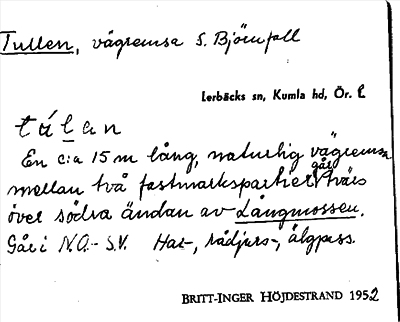 Tullen, vägremsa S. Björnfall
Lerbäcks sn, Kumla hd, Ör. l.
túlan
En c:a 15 m lång, naturlig vägremsa
går
mellan två fastmarkspartier tvärs
över södra ändan av Långmossen.
Går i N.O.- S.V. Har-, rådjurs-, älgpass.
BRITT-INGER HÖJDESTRAND 1952